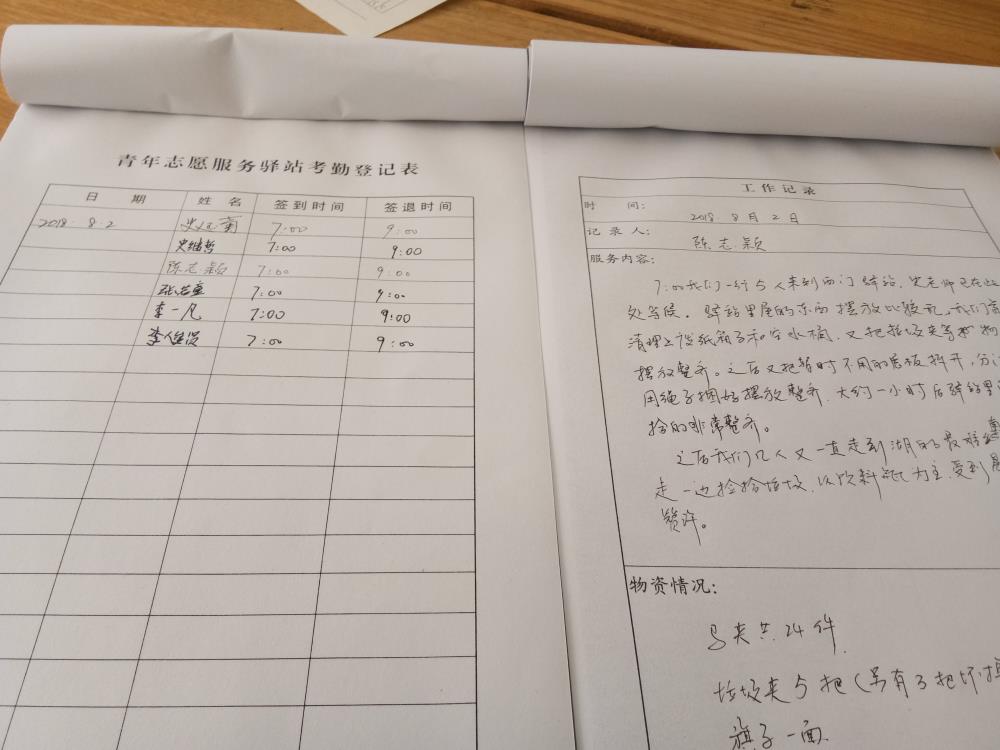 青年志愿服务驿站考勤登记表
日 期 姓 名 签到时间 签退时间
2018. 8.2 史 菊 7:00 9:00
史绪哲 7:00 9:00
陈志颖 7:00 9:00
张 童 7:00 9:00
李一凡 7:00 9:00
李 7:00 9:00
工作记录
时 间: 2018. 8月2日
记录人: 陈志颖
服务内容:
7:00我们一行5人来到西门驿站,史老师已在此
处等候。驿站里屋的东西摆放比较乱,我们
清理上后纸箱子和空水桶,又把垃圾夹等
摆放整齐。之后又把暂时不用的展板拆开,分
用绳子捆好摆放整齐.大约一小时后驿站里
拾的非常整齐。
之后我们几人又一直走到湖的最
走一边捡拾垃圾,以饮料瓶为主,受到
赞许。
物资情况:
马夹共24件
垃圾夹5把(另有3把坏掉
旗子一面